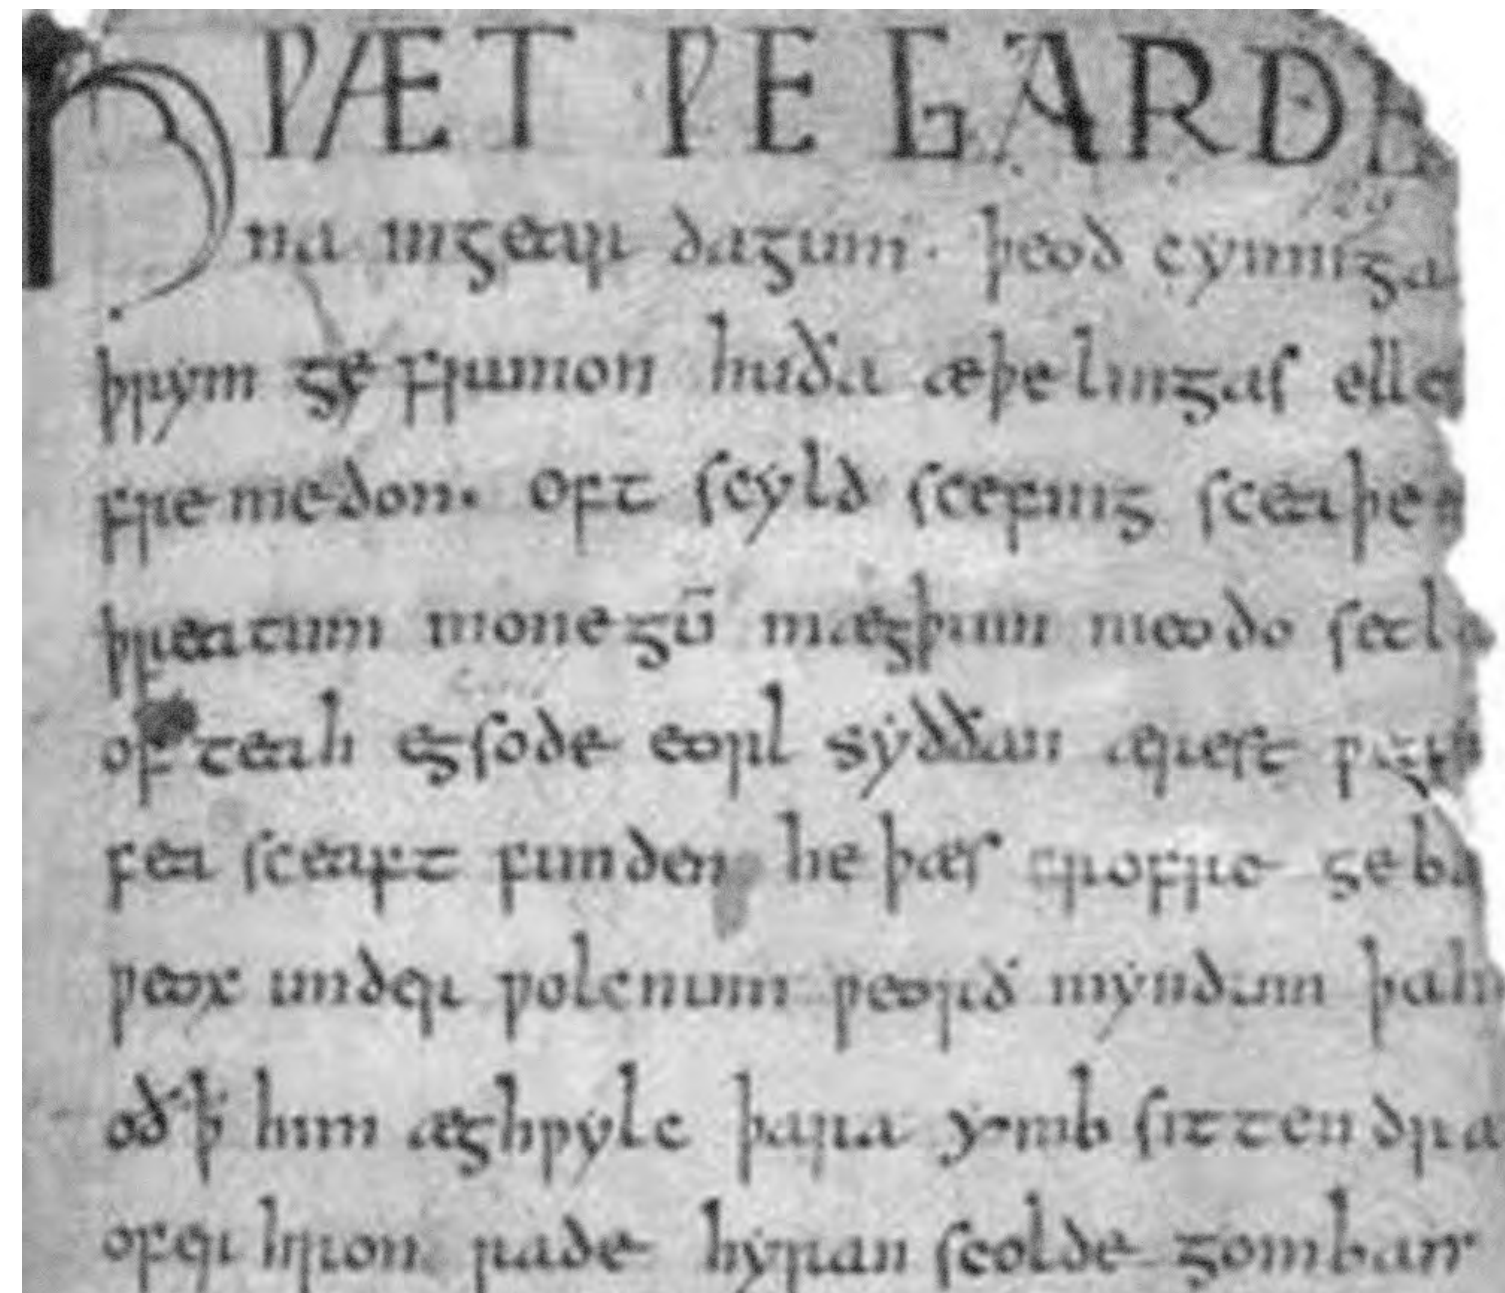 HǷÆT ǷE GARDE
na ingear dagum. þeod cyninga
þrym gefrunon huða æþelingas elle
fremedon. oft scyld scefing sceaþe
þreatum monegū mægþum meodo setla
ofteah egsode eorl syððan ærest ƿearð
feasceaft funden he þæs frofre geba
ƿeox under ƿolcnum ƿeorðmyndum þah
oðꝥ him æghƿylc þara ymbsittendra
ofer hronrade hyran scolde gomban